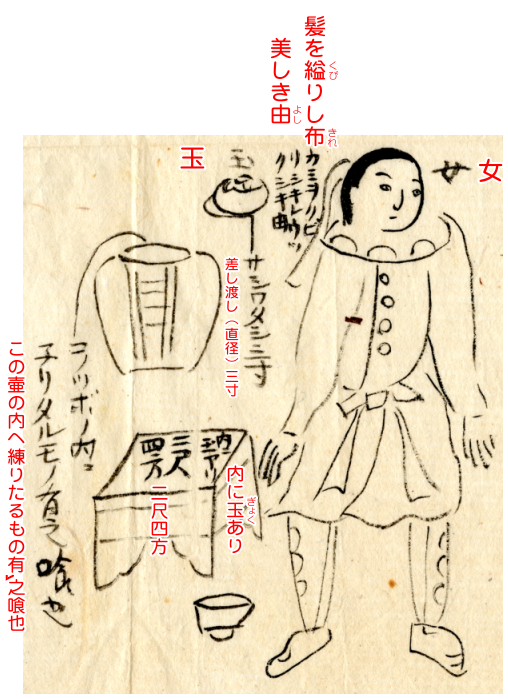 髪を縊りし布
くび
きれ
美しき由
よし
女
女
カミヲクビ
リシキレウツ
クシキ由
玉
玉
サシワタシ三寸
差し渡し（直径）三寸
内ニ
玉アリ
二尺
四方
内に玉あり
ぎょく
二尺四方
コノツボノ内ニ
子リタルモノ有之 喰也
この壷の内へ練りたるもの有之喰也